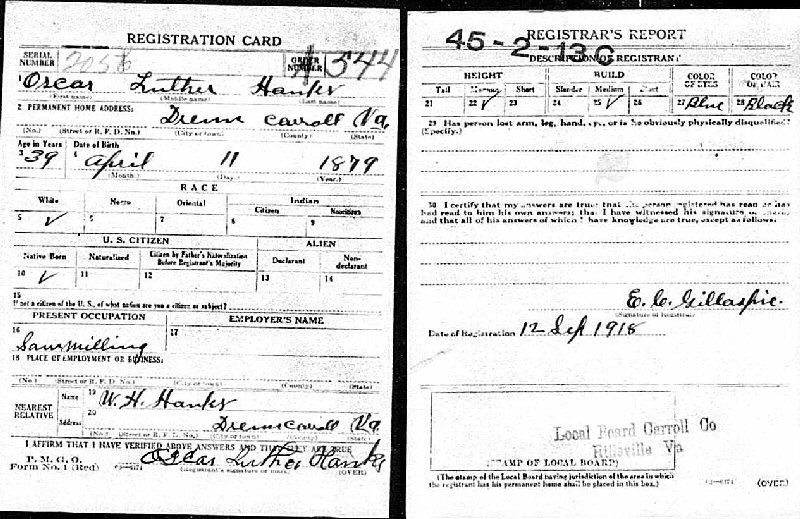 REGISTRATION CARD
SERIAL NUMBER 2056 ORDER NUMBER 544
Oscar Luther Hanks
(First name) (Middle name) (Last name)
2 PERMANENT HOME ADDRESS:
Drenn Carroll Va.
(No.) (Street or R. F. D. No.) (City or town) (County) (State)
Age in Years Date of Birth
3 39 4 April 11 1879
(Month.) (Day.) (Year.)
RACE
White Negro Oriental Indian
Citizen Noncitizen
5 ✓ 6 7 8 9
U. S. CITIZEN ALIEN
Native Born Naturalized Citizen by Father's Naturalization Before Registrant's Majority Declarant Non-declarant
10 ✓ 11 12 13 14
15
If not a citizen of the U. S., of what nation are you a citizen or subject?
PRESENT OCCUPATION EMPLOYER'S NAME
16 17
Sawmilling
18 PLACE OF EMPLOYMENT OR BUSINESS:
(No.) (Street or R. F. D. No.) (City or town) (County) (State)
NEAREST RELATIVE Name 19 W. H. Hanks
Address 20 Drenn Carroll Va
(No.) (Street or R. F. D. No.) (City or town) (County) (State)
I AFFIRM THAT I HAVE VERIFIED ABOVE ANSWERS AND THAT THEY ARE TRUE
P. M. G. O.
Form No. 1 (Red) Oscar Luther Hanks
(Registrant's signature or mark) (OVER)
45-2-13 C
REGISTRAR'S REPORT
DESCRIPTION OF REGISTRANT
HEIGHT BUILD COLOR OF EYES COLOR OF HAIR
Tall Medium Short Slender Medium Stout
21 22 ✓ 23 24 25 ✓ 26 27 Blue 28 Black
29 Has person lost arm, leg, hand, eye, or is he obviously physically disqualified?
(Specify.)
30 I certify that my answers are true; that the person registered has read or has
had read to him his own answers; that I have witnessed his signature or mark,
and that all of his answers of which I have knowledge are true, except as follows:
E. C. Gillaspie.
(Signature of Registrar)
Date of Registration 12 Sep 1918
Local Board Carroll Co
Hillsville Va
(STAMP OF LOCAL BOARD)
(The stamp of the Local Board having jurisdiction of the area in which
the registrant has his permanent home shall be placed in this box.)
(OVER)